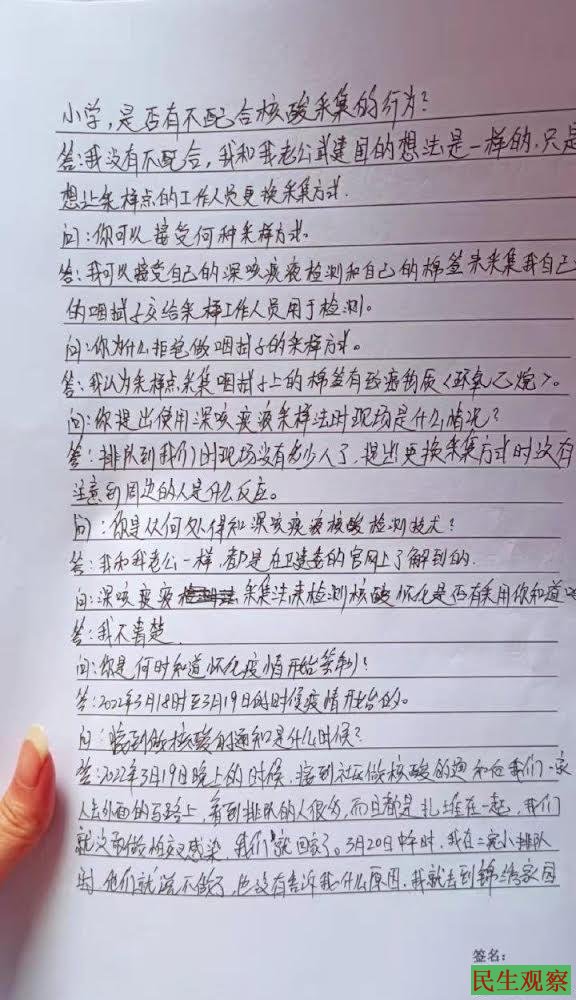 小学,是否有不配合核酸采集的行为?
答:我没有不配合,我和我老公武建国的想法是一样的,只是
想让采样点的工作人员更换采集方式.
问:你可以接受何种采样方式。
答:我可以接受自己的深咳痰液检测和自己的棉签来采集我自己
的咽拭子交给采样工作人员用于检测。
问:你为什么拒绝做咽拭子的采样方式。
答:我认为采样点采集咽拭子上的棉签有致癌物质<环氧乙烷>。
问:你提出使用深咳痰液采样法时现场是什么情况?
答:排队到我们时现场没有多少人了,提出更换采集方式时没有
注意到周边的人是什么反应。
问:你是从何处得知深咳痰液核酸检测技术?
答:我和我老公一样,都是在卫健委的官网上了解到的.
问:深咳痰液采集法来检测核酸怀化是否有采用你知道
答:我不清楚
问:你是何时知道怀化疫情开始管制?
答:2022年3月18时至3月19日的时候疫情开始的。
问:接到做核酸的通知是什么时候?
答:2022年3月19日晚上的时候,接到社区做核酸的通知后我们一家
人去外面的马路上,看到排队的人很多,而且都是扎堆在一起,我们
就没有做怕交叉感染,我们就回家了。3月20日中午时,我在二完小排队
时,他们就说不做了,也没有告诉我什么原因,我就去到锦绣家园
签名:
民生观察